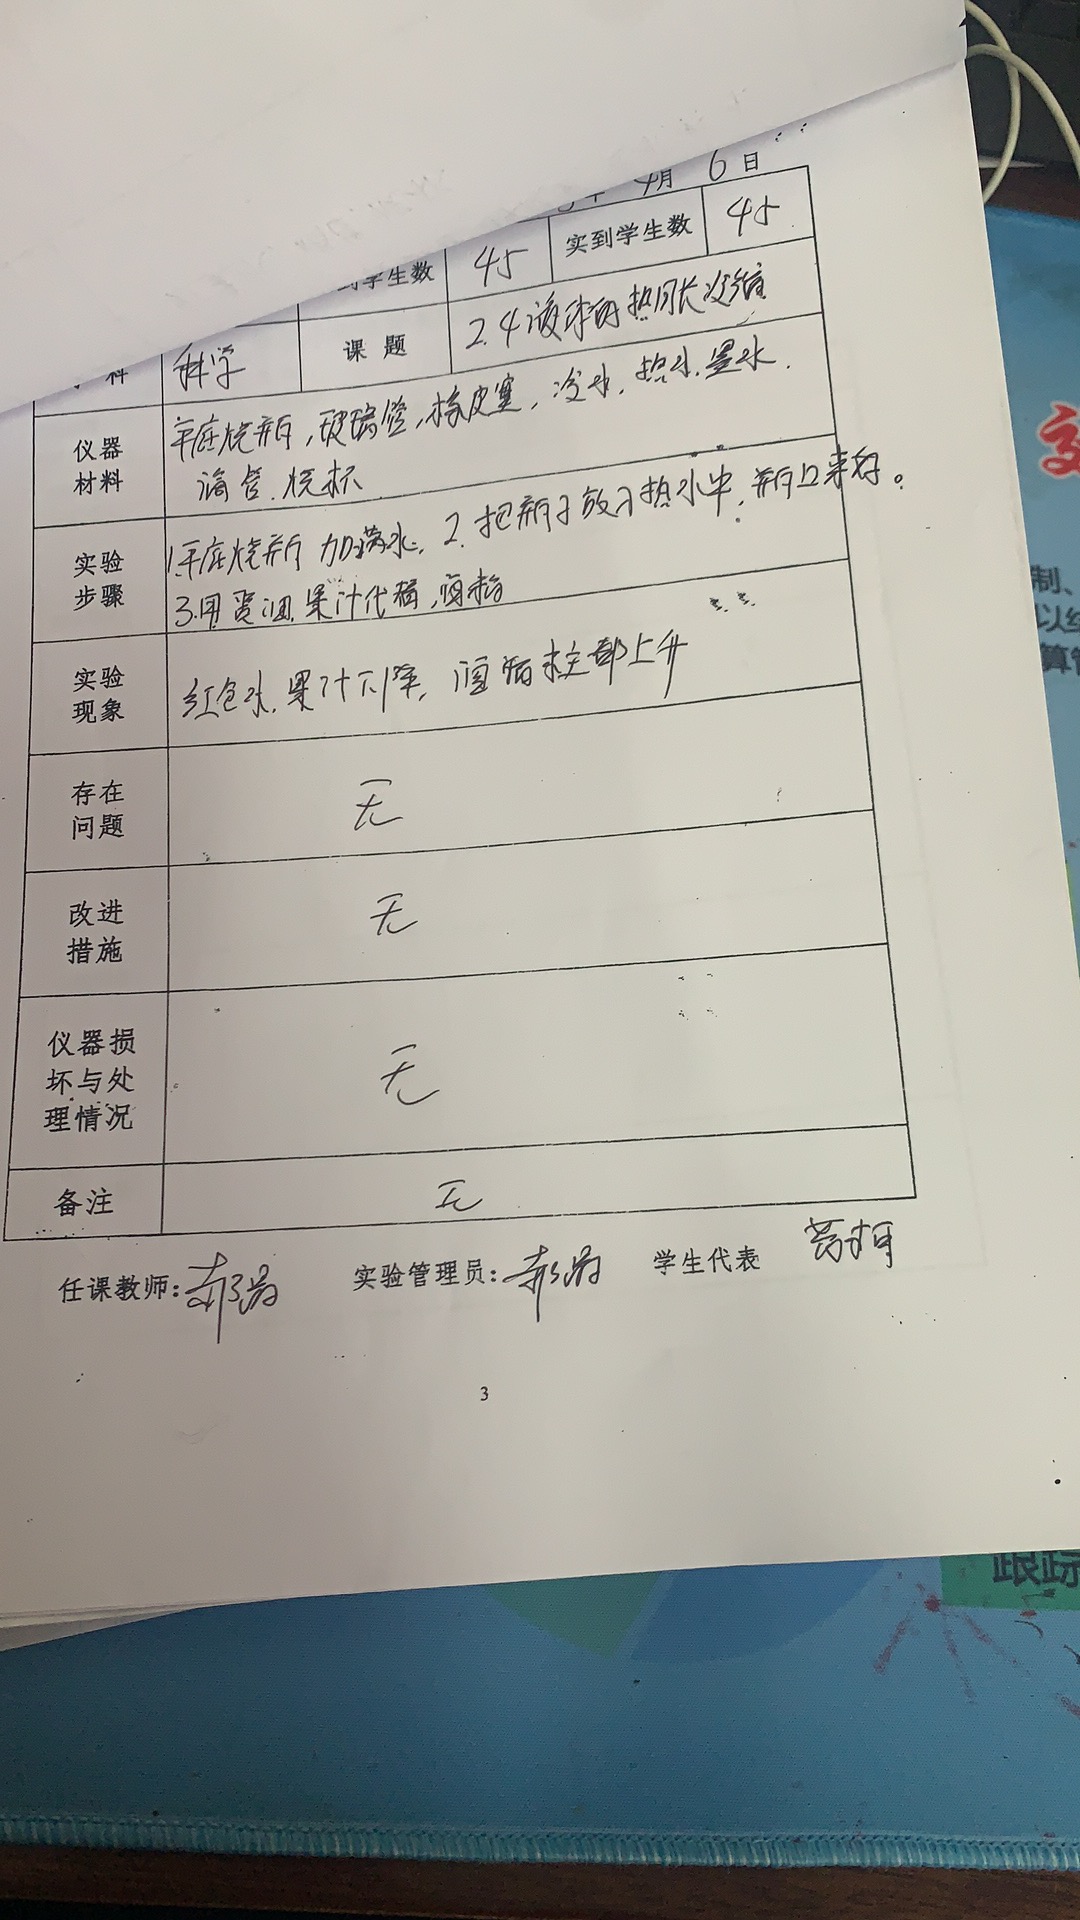 4月 6 日
到学生数 45 实到学生数 45
科 科学 课 题 2.4液体的热胀冷缩
仪器
材料
平底烧瓶,玻璃管,橡皮塞,冷水,热水,墨水.
滴管.烧杯
实验
步骤
1.平底烧瓶 加满水. 2.把瓶子放入热水中,瓶口
3.用 果汁代替,
实验
现象
红色水.果汁下降, 上升
存在
问题
无
改进
措施
无
仪器损
坏与处
理情况
无
备注
无
任课教师: 实验管理员: 学生代表
3
制、
以
算
跟踪